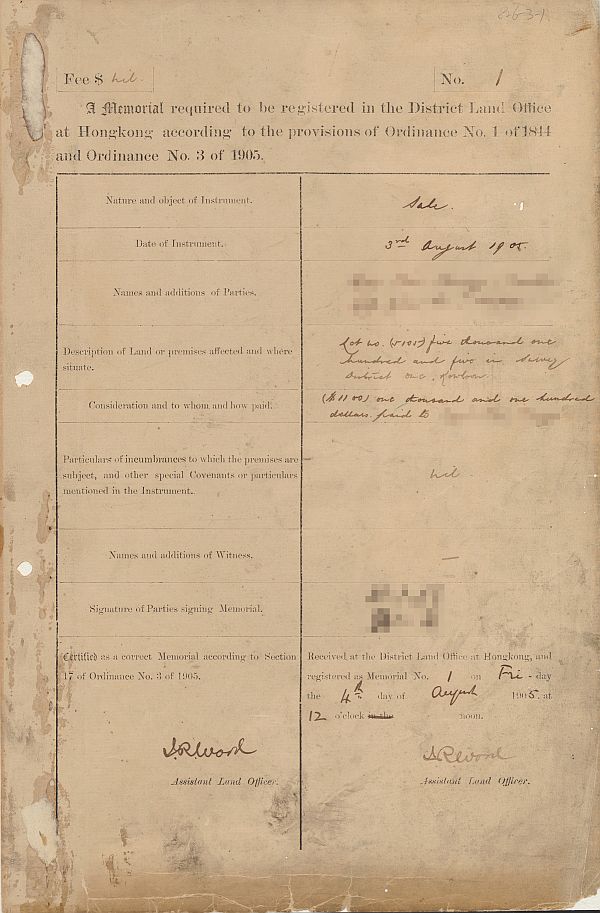 Fee $ nil.
No. 1
A Memorial required to be registered in the District Land Office
at Hongkong according to the provisions of Ordinance No. 1 of 1844
and Ordinance No. 3 of 1905.
Nature and object of Instrument.
Sale.
Date of Instrument.
3rd August 1905.
Names and additions of Parties.
Description of Land or premises affected and where
situate.
Lot no. (5105) five thousand one
hundred and five in Survey
District one, Kowloon.
Consideration and to whom and how paid.
($1100) one thousand and one hundred
dollars. paid to
Particulars of incumbrances to which the premises are
subject, and other special Covenants or particulars
mentioned in the Instrument.
nil.
Names and additions of Witness.
—
Signature of Parties signing Memorial.
Certified as a correct Memorial according to Section
17 of Ordinance No. 3 of 1905.
Assistant Land Officer.
Received at the District Land Office at Hongkong, and
registered as Memorial No. 1 on Fri-day
the 4th day of August 1905, at
12 o'clock in the noon.
Assistant Land Officer.